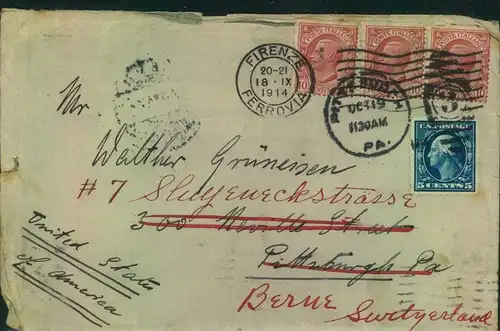 POSTE ITALIANE POSTE ITALIANE POSTE ITALIANE
FIRENZE
20-21
18 · IX
1914
FERROVIA
OCT 19
1130AM
PA.
U.S. POSTAGE
5 CENTS 5
Mr.
Walther Grüneisen
# 7 Sluyeneckstrasse
300 Neville Street
Pittsburgh Pa
Berne Switzerland
United States
of America